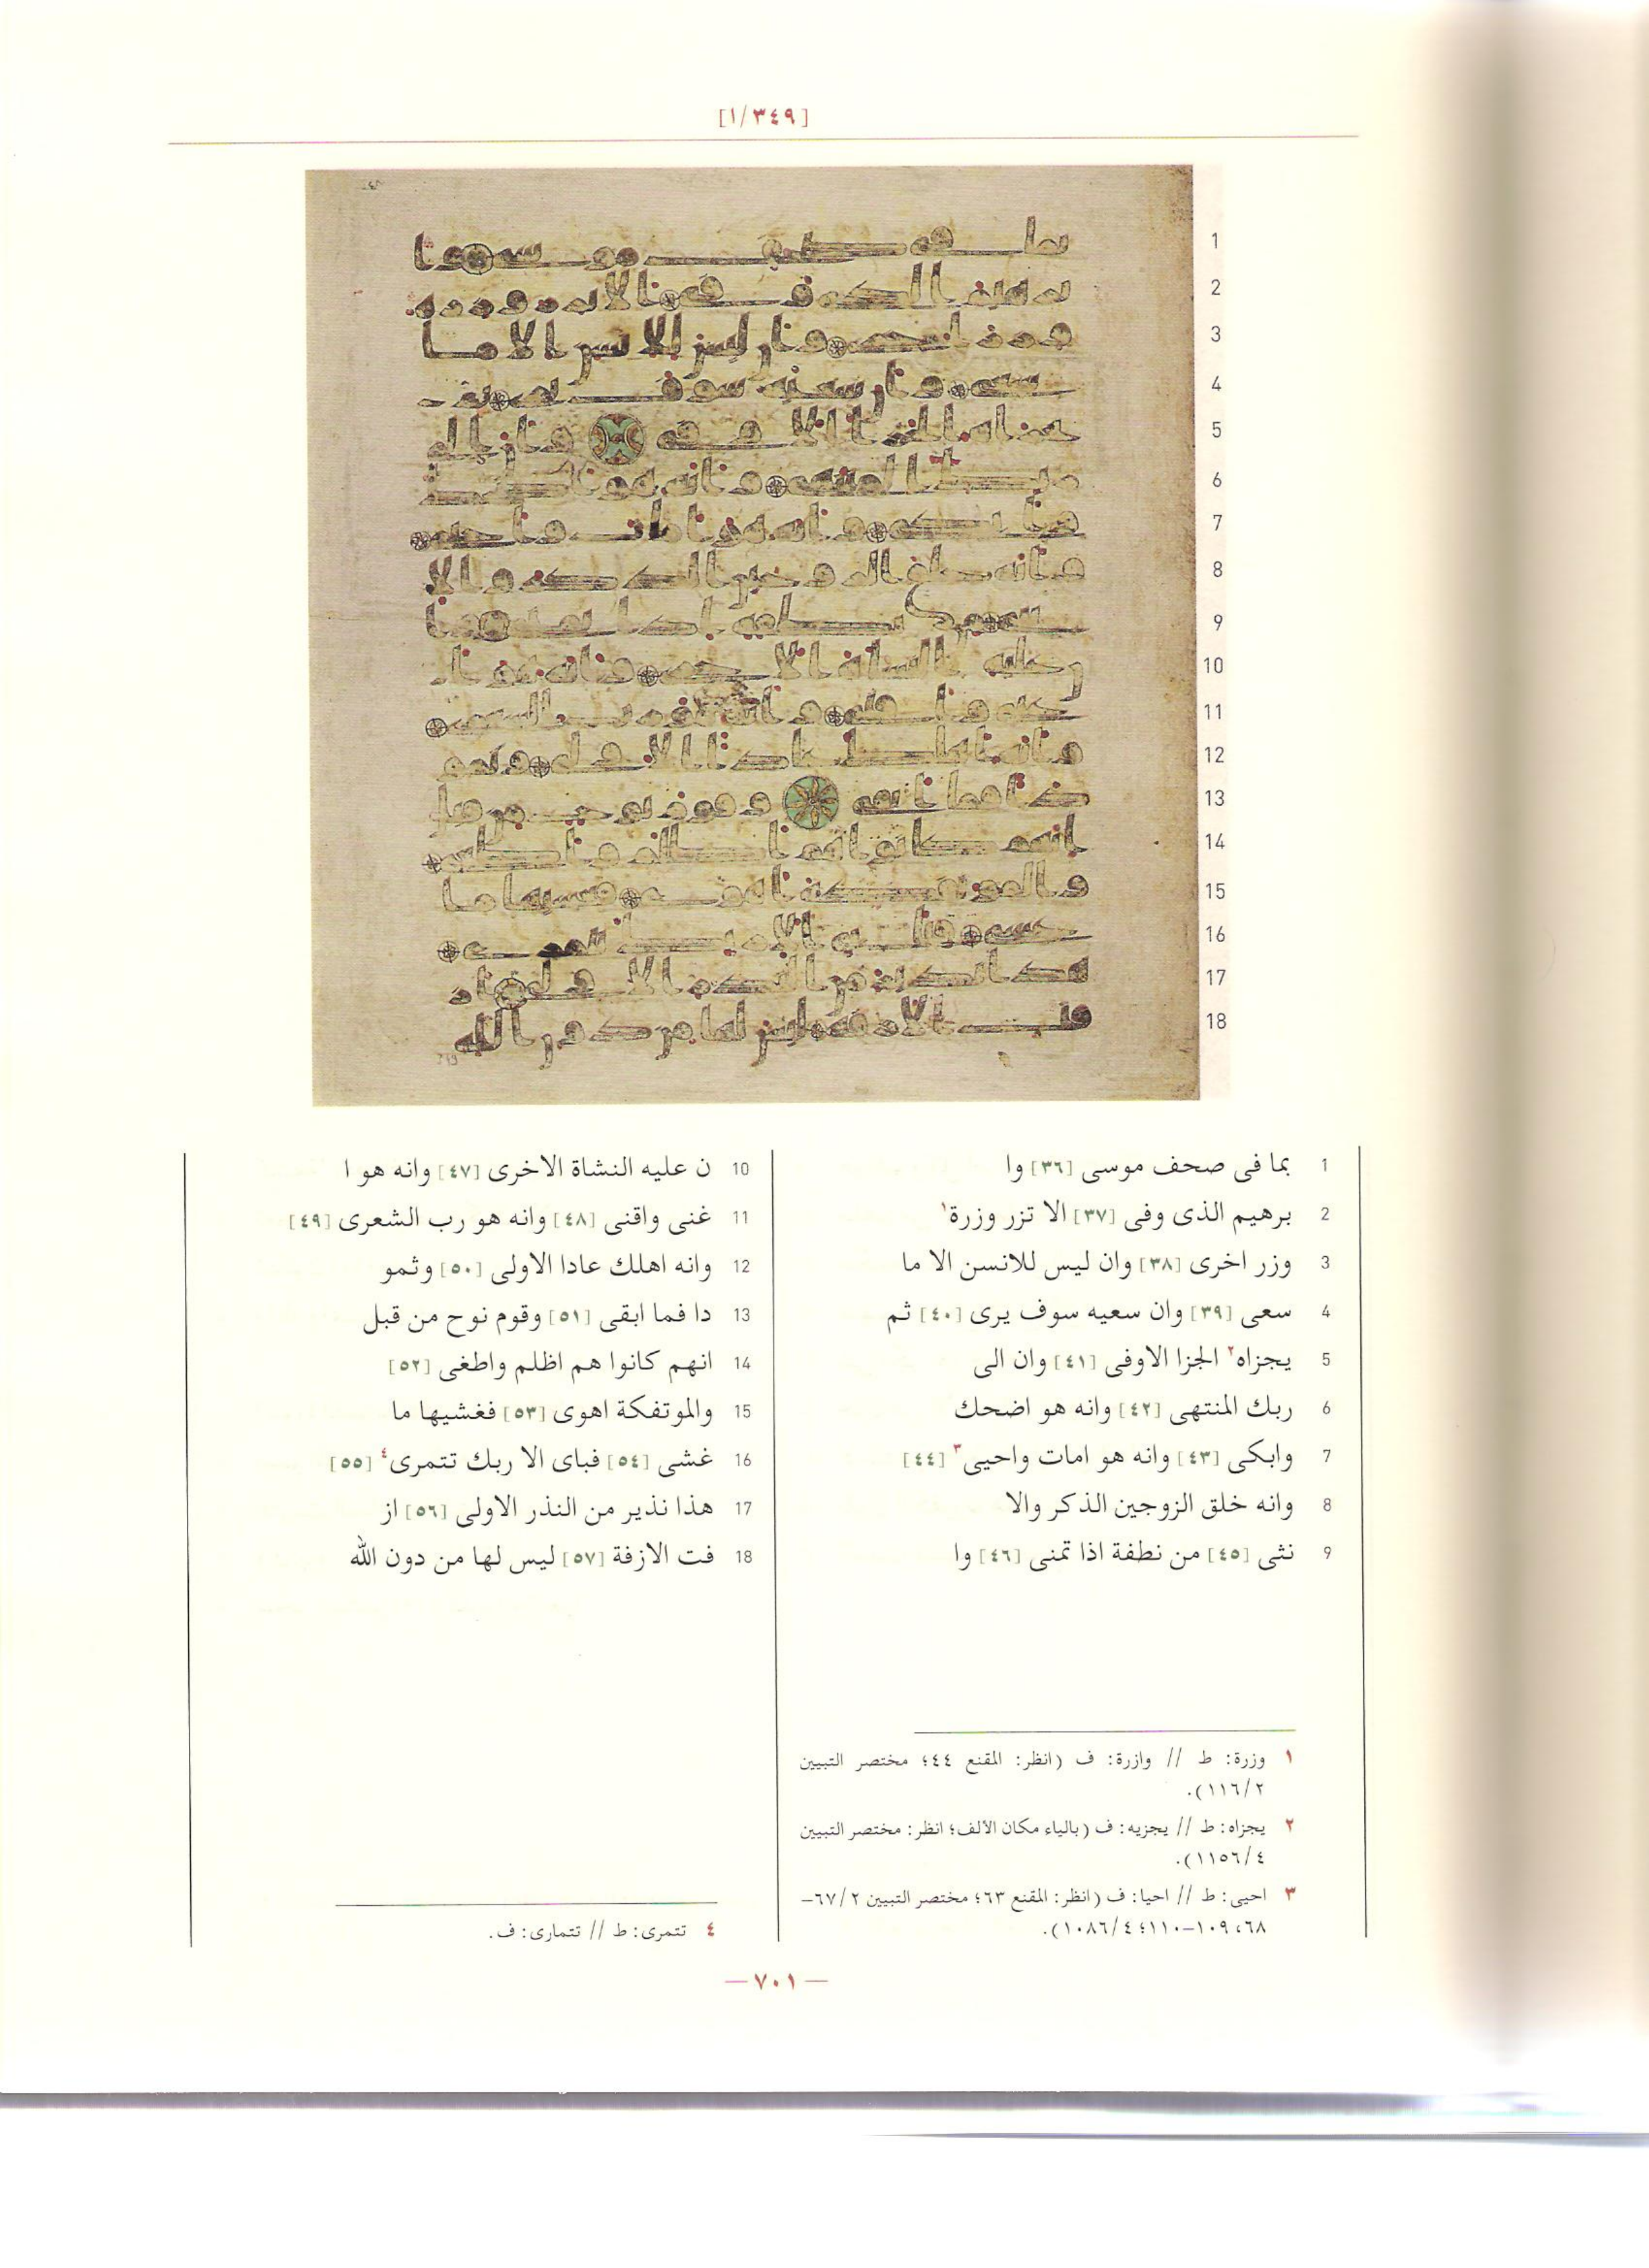 [٣٤٩/١]
1 بما فى صحف موسى [٣٦] وا
2 برهيم الذى وفى [٣٧] الا تزر وزرة١
3 وزر اخرى [٣٨] وان ليس للانسن الا ما
4 سعى [٣٩] وان سعيه سوف يرى [٤٠] ثم
5 يجزاه٢ الجزا الاوفى [٤١] وان الى
6 ربك المنتهى [٤٢] وانه هو اضحك
7 وابكى [٤٣] وانه هو امات واحيى٣ [٤٤]
8 وانه خلق الزوجين الذكر والا
9 نثى [٤٥] من نطفة اذا تمنى [٤٦] وا
١ وزرة: ط // وازرة: ف (انظر: المقنع ٤٤؛ مختصر التبيين
١١٦/٢).
٢ يجزاه: ط // يجزيه: ف (بالياء مكان الالف؛ انظر: مختصر التبيين
١١٥٦/٤).
٣ احيى: ط // احيا: ف (انظر: المقنع ٦٣؛ مختصر التبيين ٦٧/٢–
٦٨، ١٠٩–١١٠؛ ١٠٨٦/٤).
10 ن عليه النشاة الاخرى [٤٧] وانه هو ا
11 غنى واقنى [٤٨] وانه هو رب الشعرى [٤٩]
12 وانه اهلك عادا الاولى [٥٠] وثمو
13 دا فما ابقى [٥١] وقوم نوح من قبل
14 انهم كانوا هم اظلم واطغى [٥٢]
15 والموتفكة اهوى [٥٣] فغشيها ما
16 غشى [٥٤] فباى الا ربك تتمرى٤ [٥٥]
17 هذا نذير من النذر الاولى [٥٦] از
18 فت الازفة [٥٧] ليس لها من دون الله
٤ تتمرى: ط // تتمارى: ف.
— ٧٠١ —